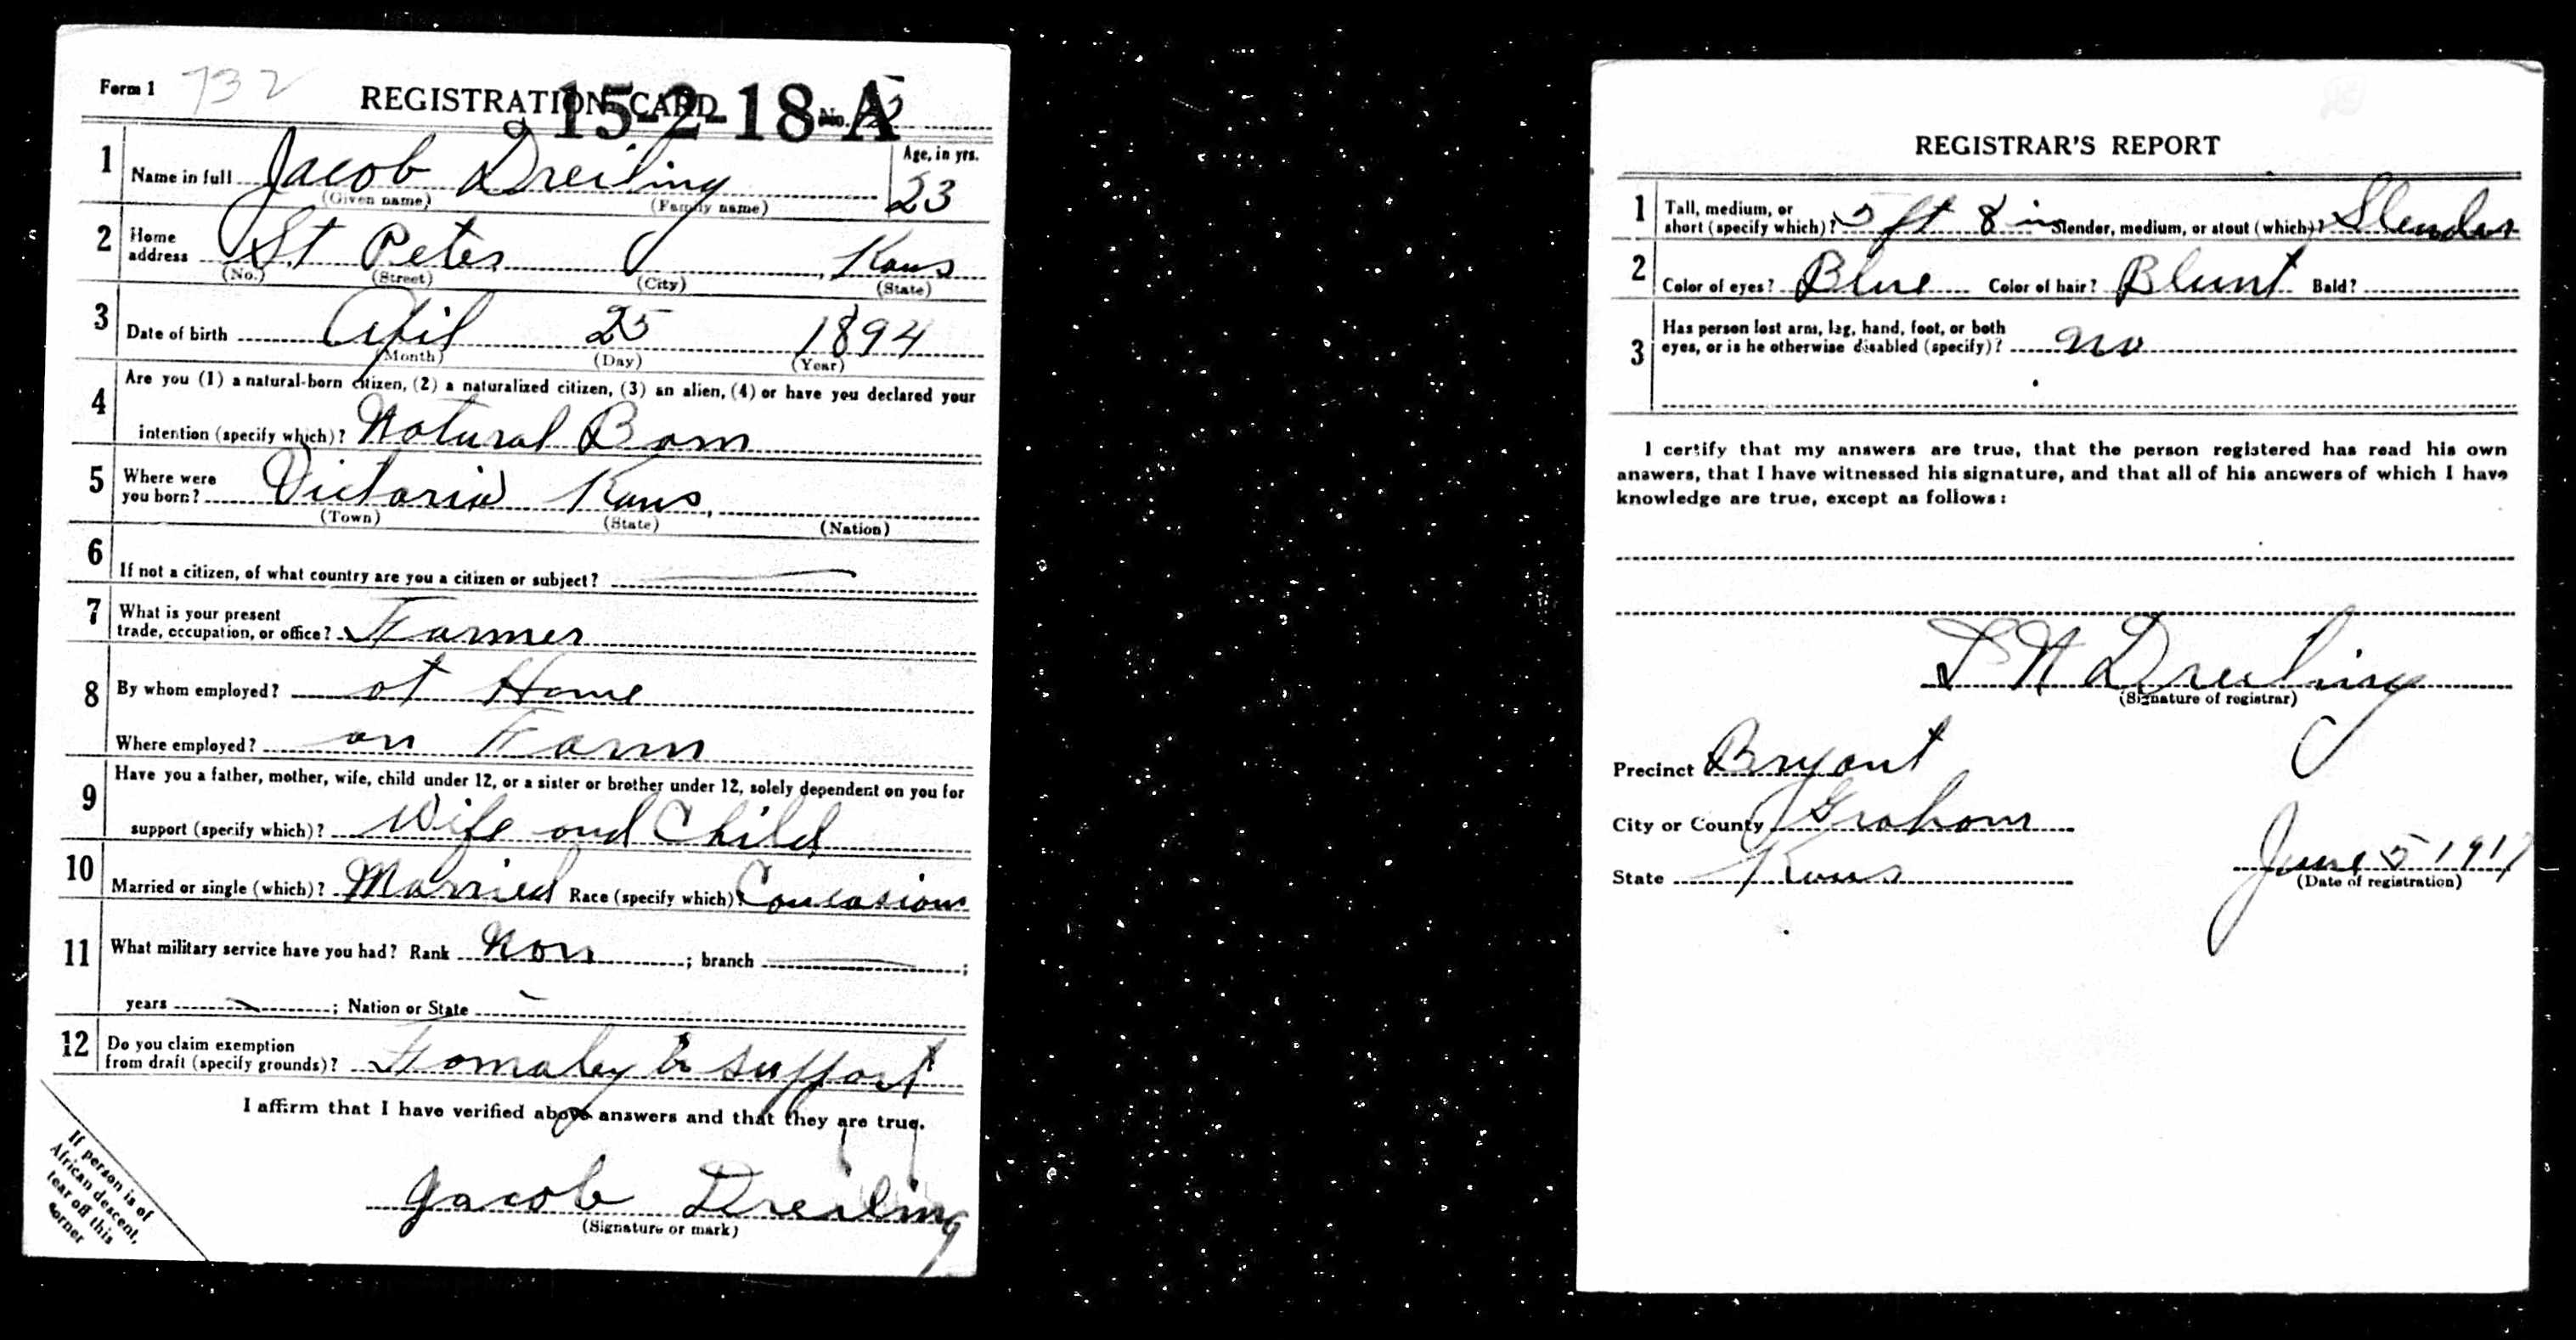 Form 1 732
REGISTRATION CARD No.
15-2-18-A
1 Name in full Jacob Dreiling Age, in yrs.
(Given name) (Family name) 23
2 Home address St Peter Kans
(No.) (Street) (City) (State)
3 Date of birth Apil 25 1894
(Month) (Day) (Year)
4 Are you (1) a natural-born citizen, (2) a naturalized citizen, (3) an alien, (4) or have you declared your
intention (specify which)? Natural Born
5 Where were you born? Victoria Kans,
(Town) (State) (Nation)
6 If not a citizen, of what country are you a citizen or subject?
7 What is your present
trade, occupation, or office? Farmer
8 By whom employed? at Home
Where employed? on Farm
9 Have you a father, mother, wife, child under 12, or a sister or brother under 12, solely dependent on you for
support (specify which)? Wife and Child
10 Married or single (which)? Married Race (specify which)? Concasion
11 What military service have you had? Rank Non ; branch ;
years ; Nation or State
12 Do you claim exemption
from draft (specify grounds)? Fomaley to support
I affirm that I have verified above answers and that they are true.
Jacob Dreiling
(Signature or mark)
If person is of
African descent,
tear off this
corner
REGISTRAR'S REPORT
1 Tall, medium, or
short (specify which)? 5 ft 8 in Slender, medium, or stout (which)? Slender
2 Color of eyes? Blue Color of hair? Blunt Bald?
3 Has person lost arm, leg, hand, foot, or both
eyes, or is he otherwise disabled (specify)? no
I certify that my answers are true, that the person registered has read his own
answers, that I have witnessed his signature, and that all of his answers of which I have
knowledge are true, except as follows:
Dreiling
(Signature of registrar)
Precinct Bryant
City or County Graham
State Kans June 5 1917
(Date of registration)